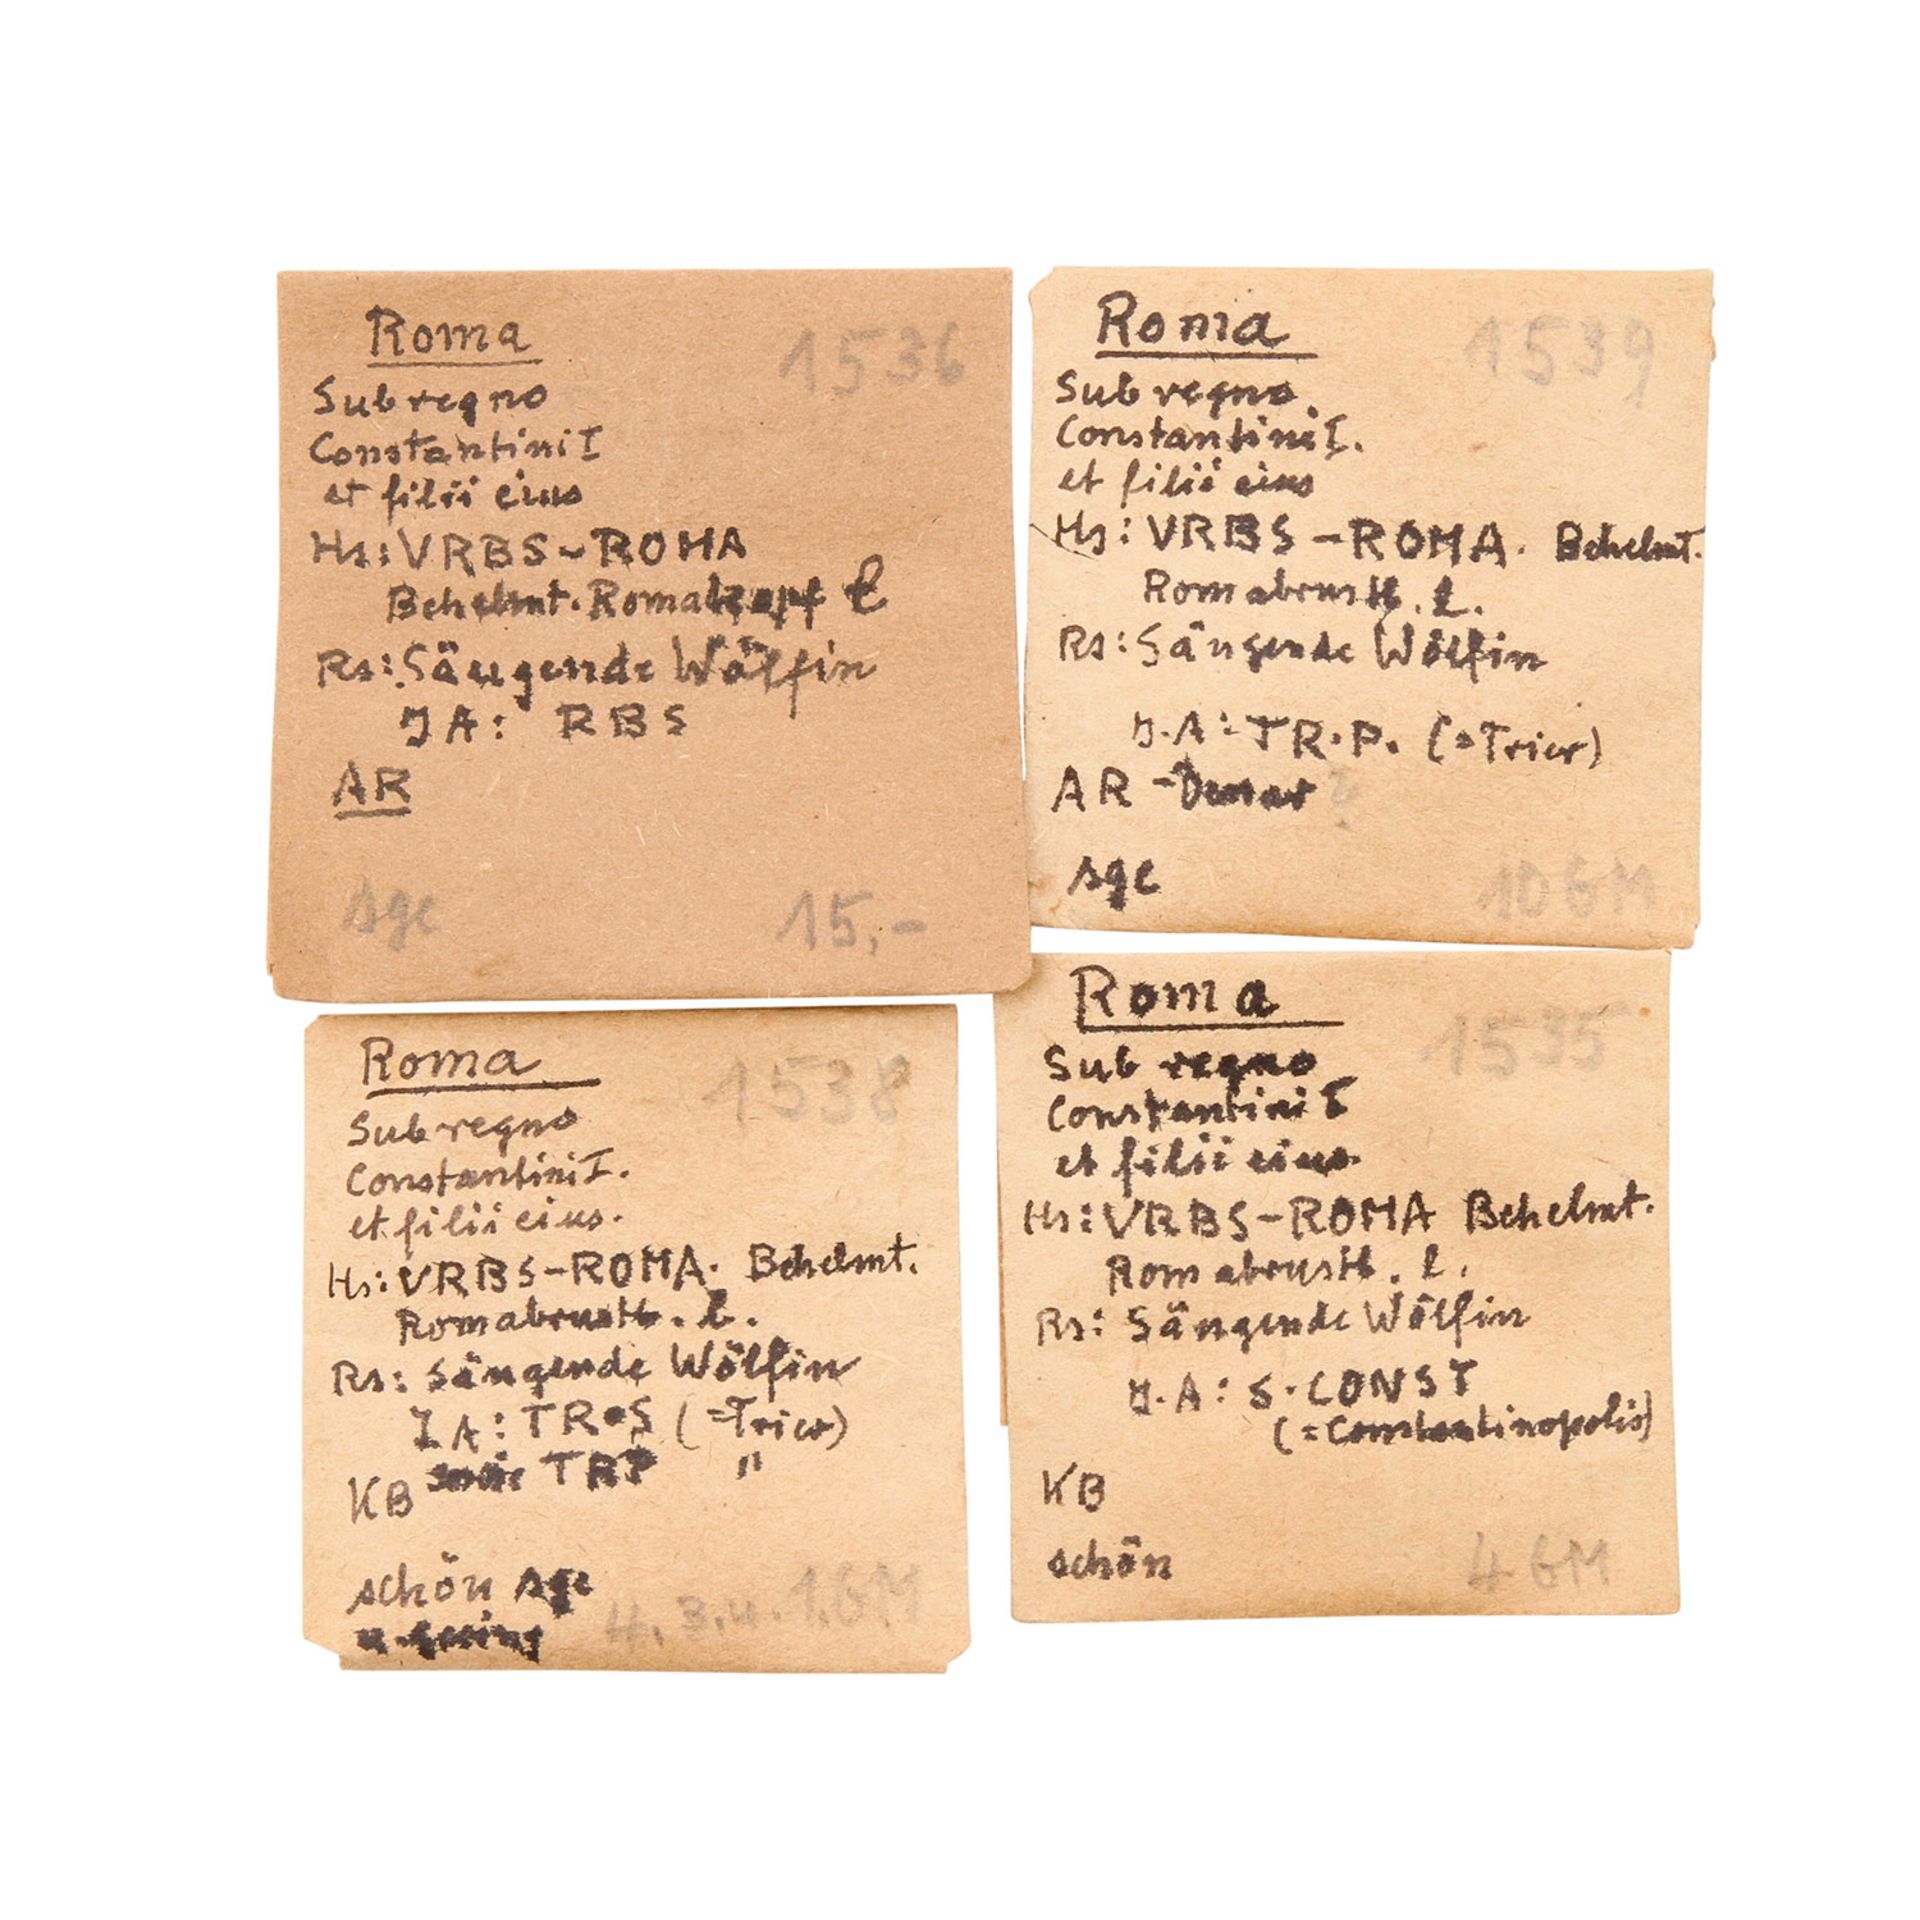 Roma 1536
Sub regno
Constantini I
et filii eius
Hs: VRBS-ROMA
Behelmt. Romakopf l
Rs: Säugende Wölfin
JA: RBS
AR
sge 15,-
Roma 1539
Sub regno
Constantini I.
et filii eius
Hs: VRBS-ROMA. Behelmt.
Romabrustb. l.
Rs: Säugende Wölfin
J.A: TR.P. (=Trier)
AR-Denar ?
sge 10 GM
Roma 1538
Sub regno
Constantini I.
et filii eius.
Hs: VRBS-ROMA. Behelmt.
Romabrustb. l.
Rs: Säugende Wölfin
IA: TR•S (=Trier)
KB sowie TRP "
schön sge
u. gering 4. 3. u. 1.GM
Roma 1535
Sub regno
Constantini I
et filii eius.
Hs: VRBS-ROMA Behelmt.
Romabrustb. l.
Rs: Säugende Wölfin
J.A: S.CONST
(=Constantinopolis)
KB
schön 4 GM